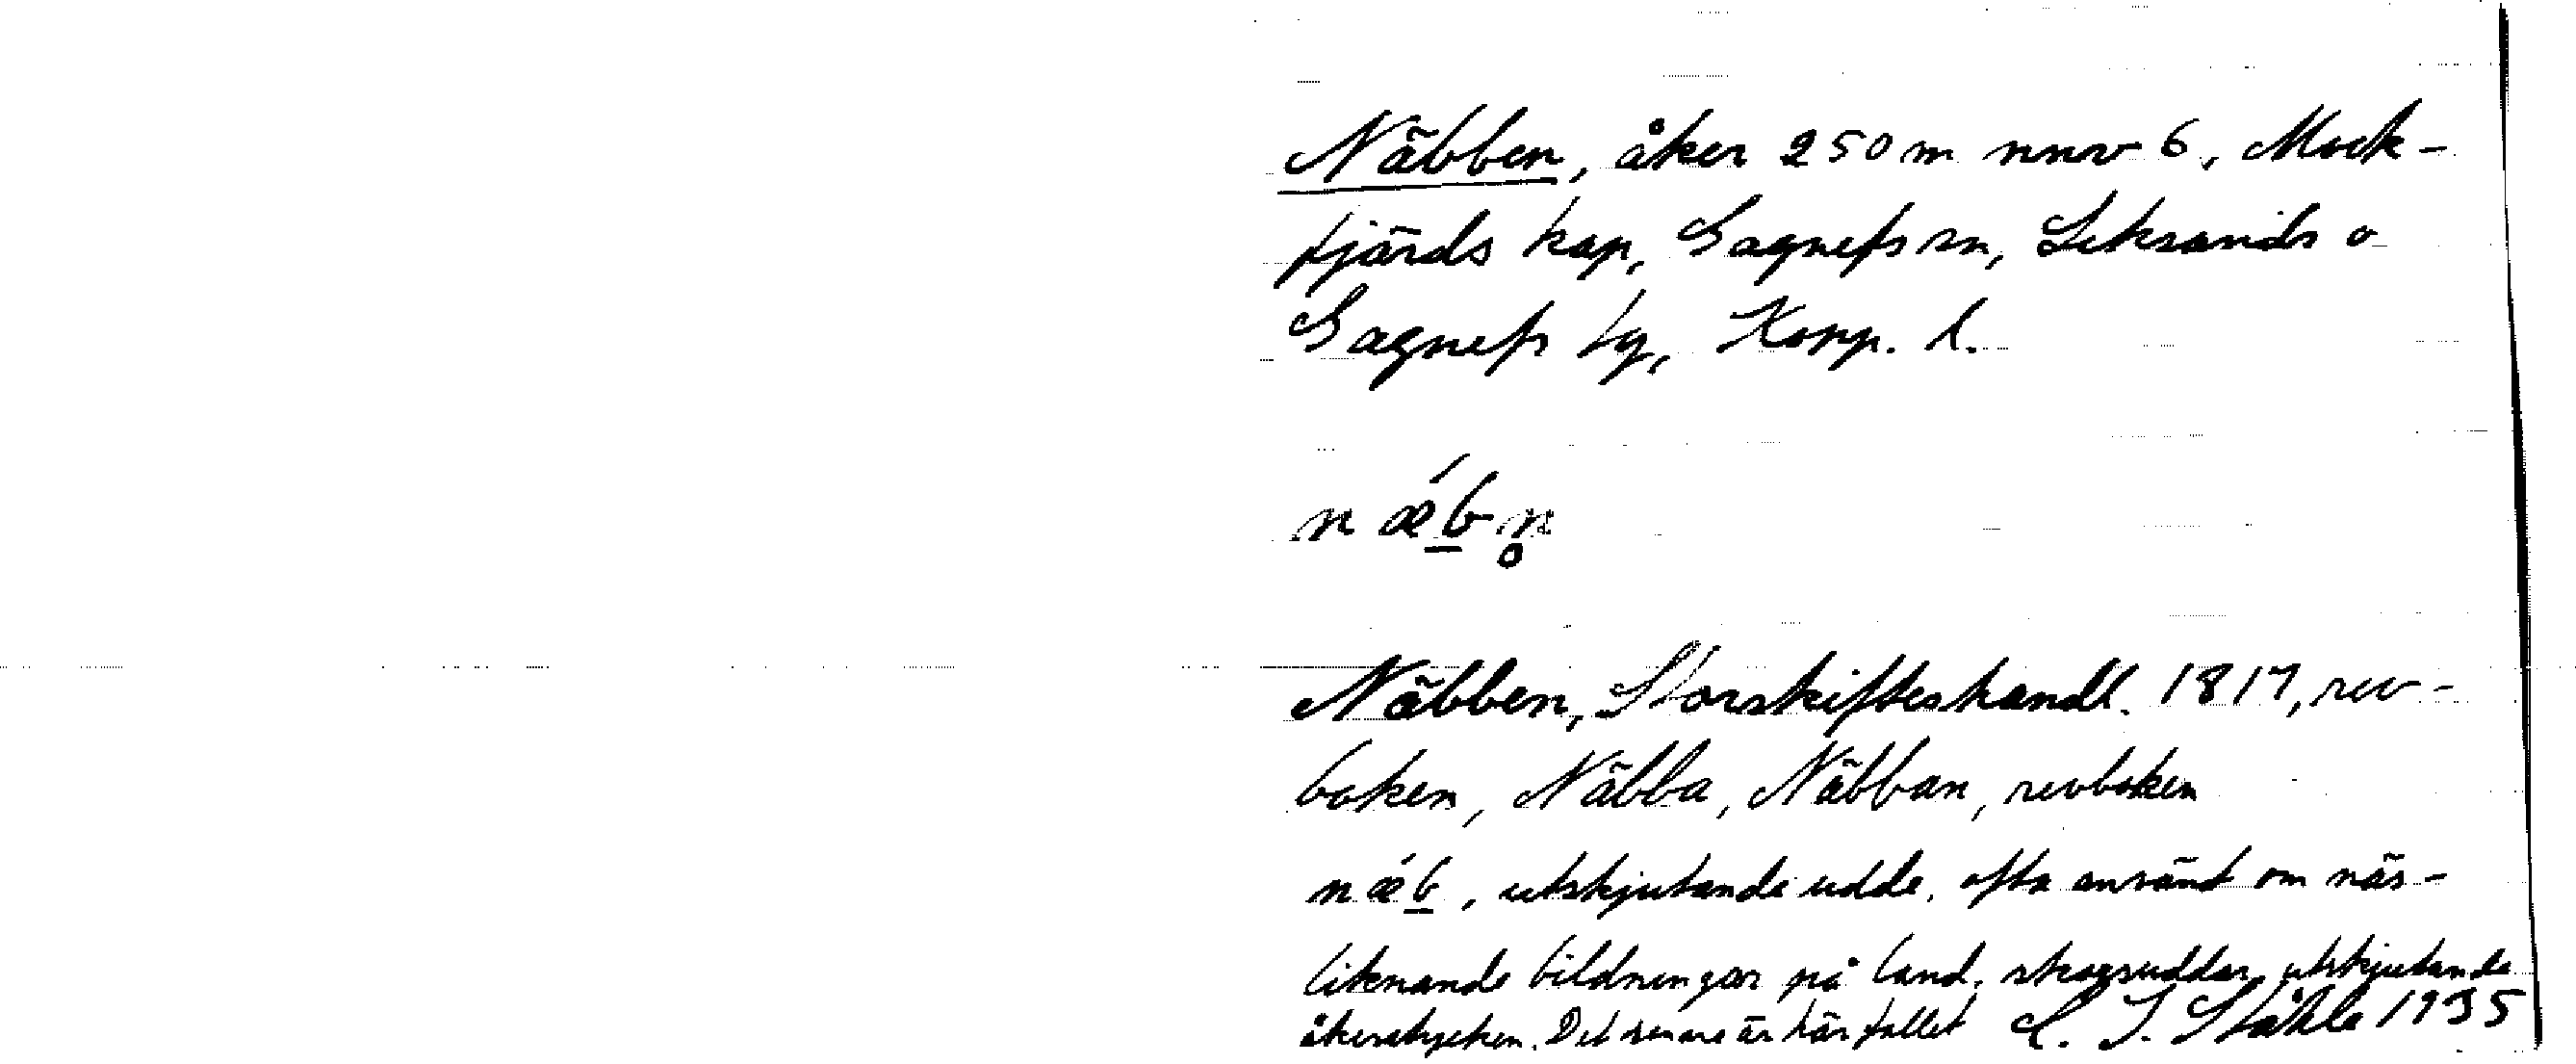 Näbben, åker 250 m nnv 6, Mock-
fjärds kap, Gagnefs sn, Leksands o
Gagnefs tg, Kopp. l.
nǽb̲n̥
Näbben, Storskifteshandl. 1817, rev-
boken, Näbba, Näbban, revboken
nǽb̲, utskjutande udde, ofta använt om näs-
liknande bildningar på land, skogsuddar, utskjutande
åkerstycken. Det senare är här fallet C. I. Ståhle 1935